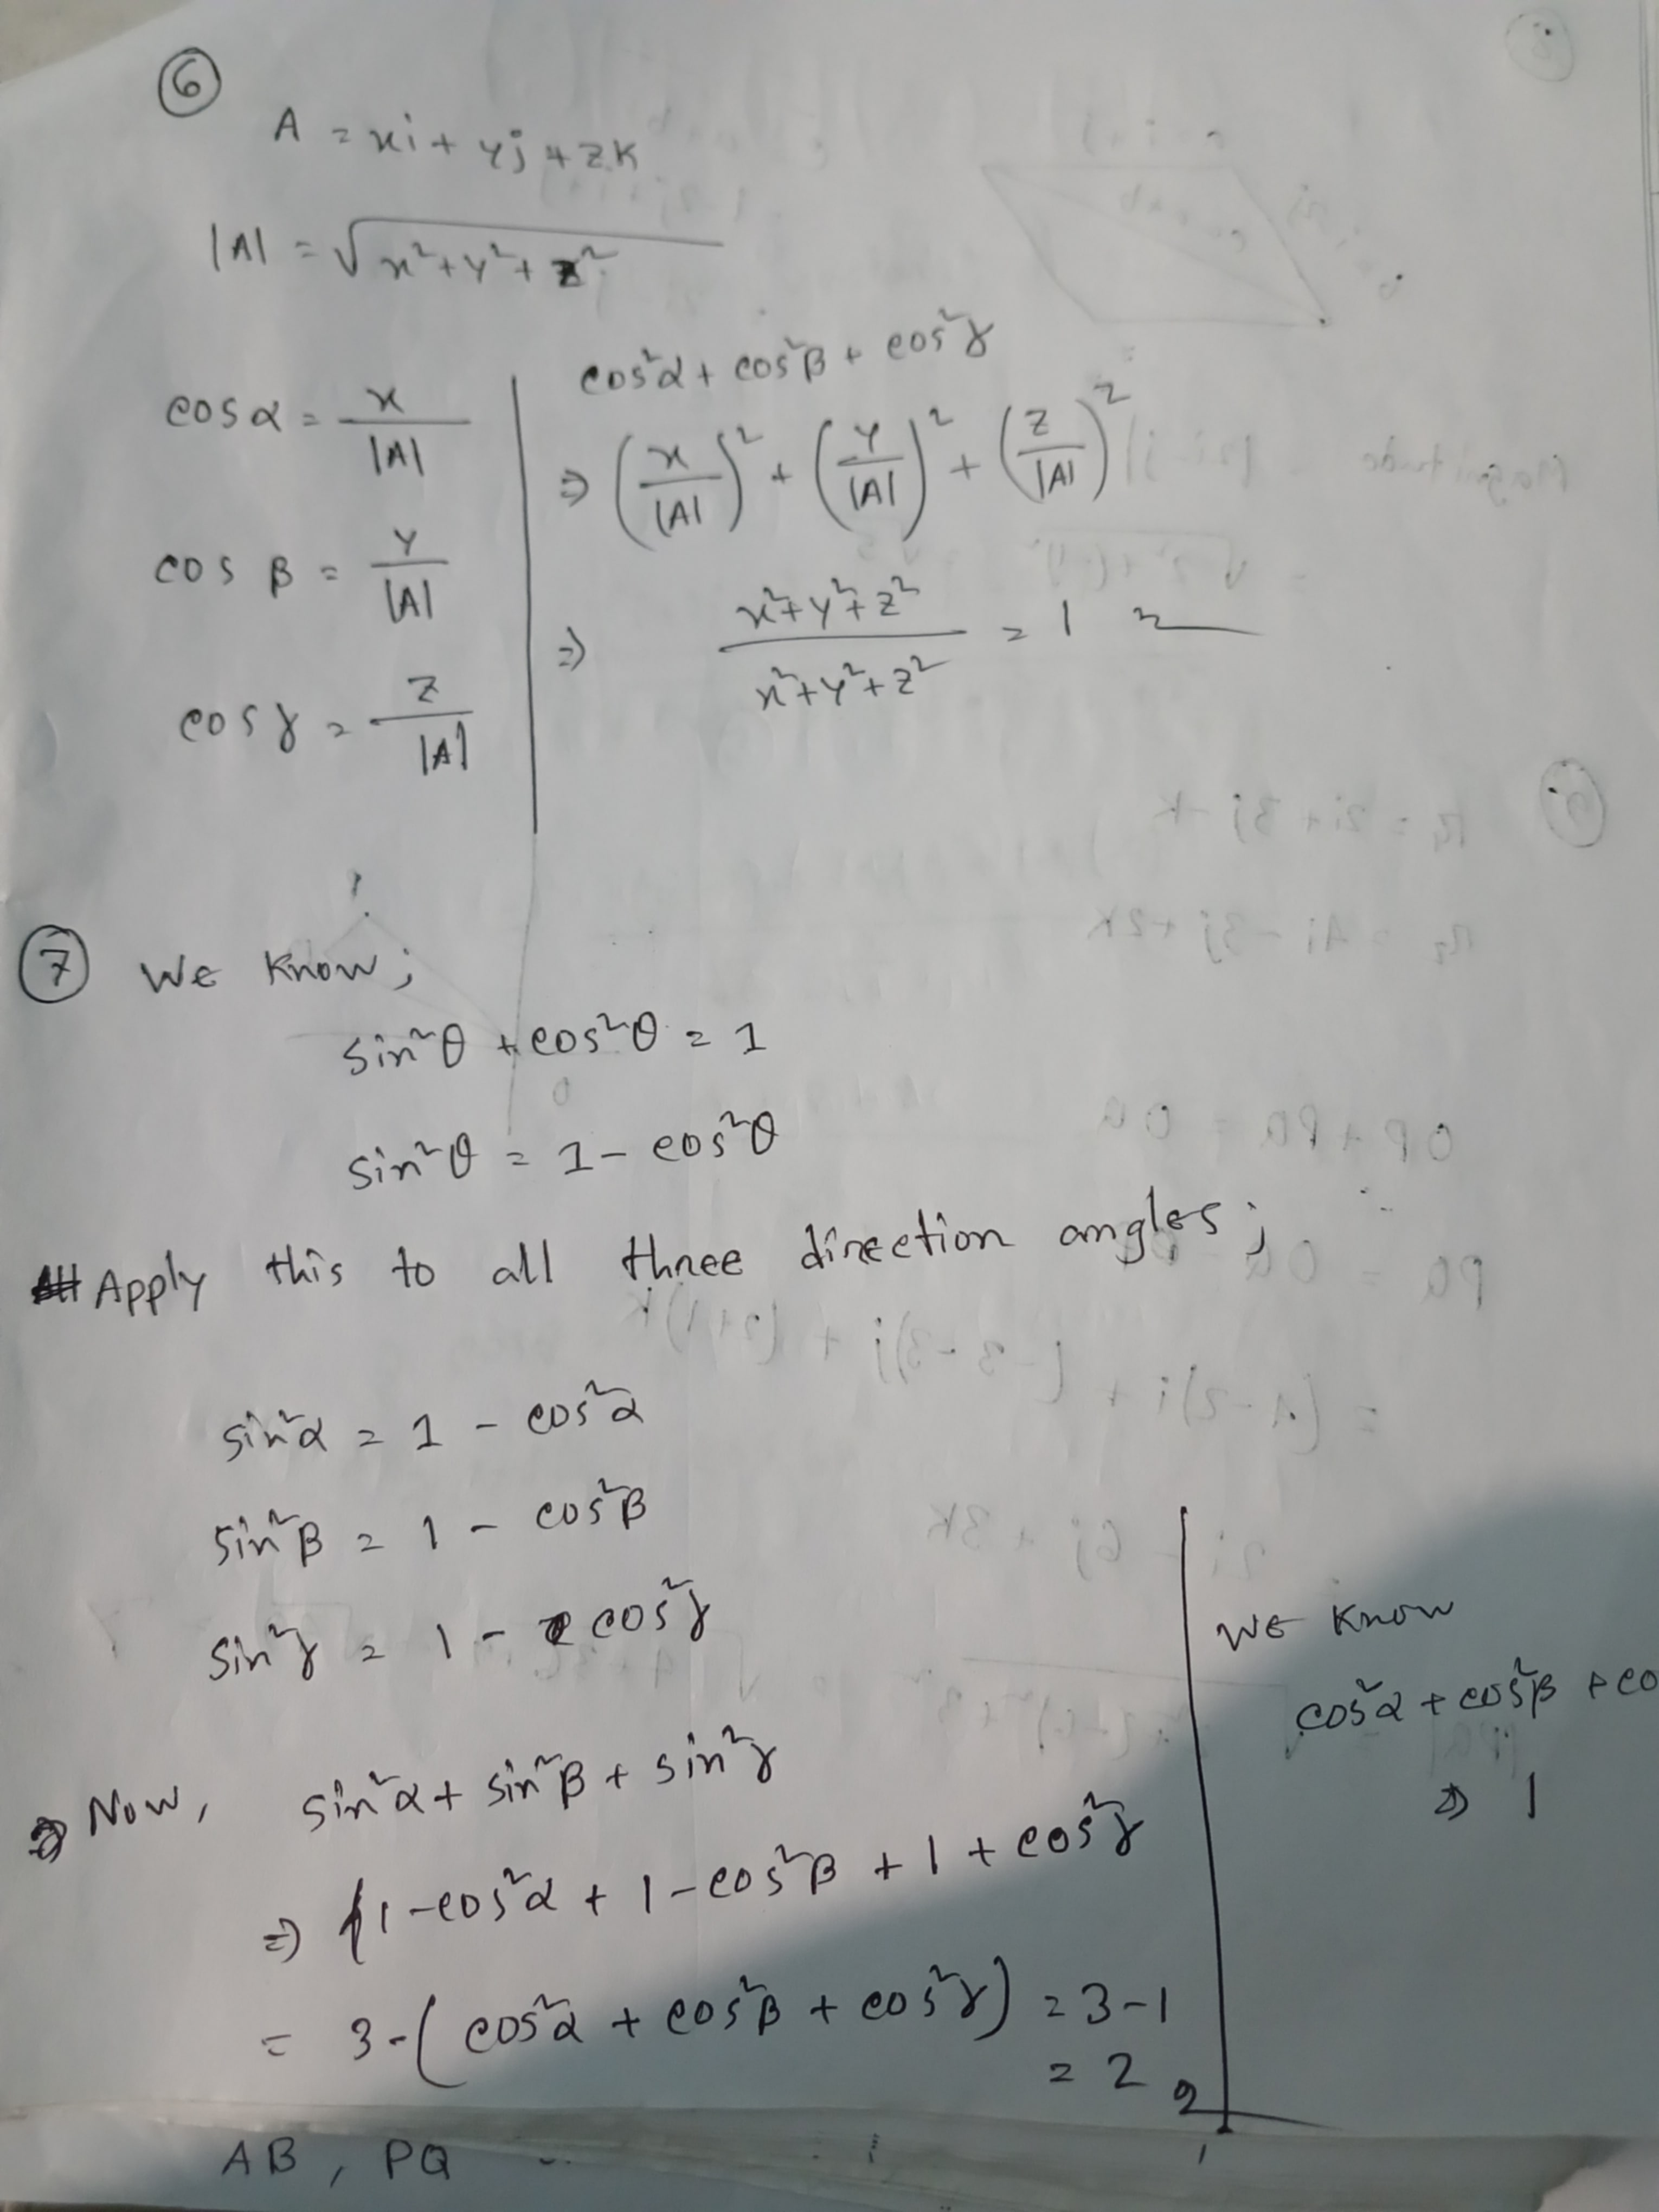 6
A = xi + yj + zk
|A| = √x²+y²+z²
cosα = x/|A|
cos β = y/|A|
cosγ = z/|A|
cos²α + cos²β + cos²γ
⇒ (x/|A|)² + (y/|A|)² + (z/|A|)²
⇒ x²+y²+z² / x²+y²+z² = 1
7 We know;
sin²θ + cos²θ = 1
sin²θ = 1 - cos²θ
Apply this to all three direction angles;
sin²α = 1 - cos²α
sin²β = 1 - cos²β
sin²γ = 1 - cos²γ
⇒ Now, sin²α + sin²β + sin²γ
⇒ 1-cos²α + 1-cos²β + 1 + cos²γ
= 3-(cos²α + cos²β + cos²γ) = 3-1
= 2
We know
cos²α + cos²β + co
⇒ 1
AB, PQ